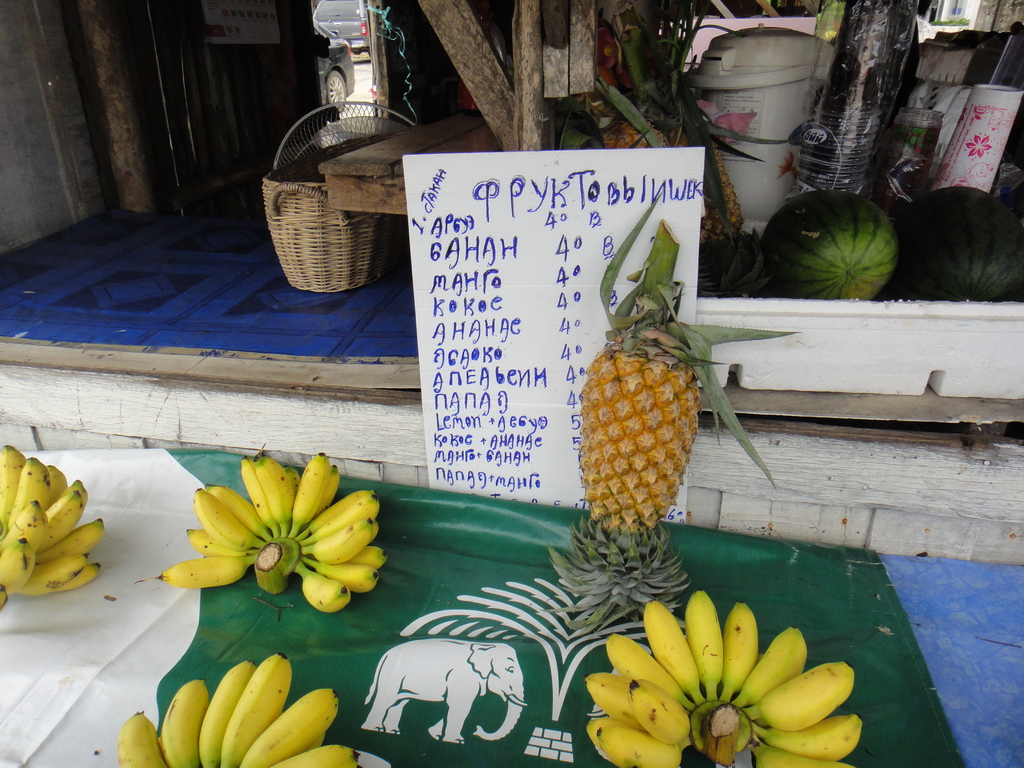 1. СТАКАН
ФРУКТОВЫЙ ШЕК
АРБУЗ 40 B
БАНАН 40 B
МАНГО 40
КОКОС 40 B
АНАНАС 40
ЯБЛОКО 40
АПЕЛЬСИН 40
ПАПАЯ 4
Lemon + АРБУЗ 5
КОКОС + АНАНАС 5
МАНГО + БАНАН
ПАПАЯ + МАНГО